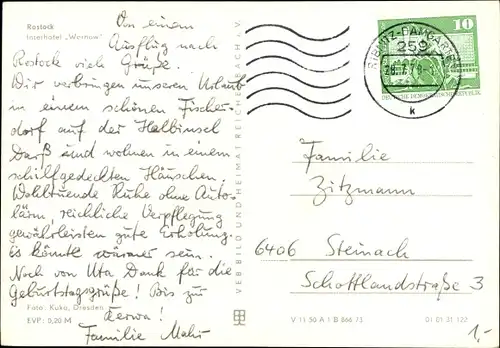 Rostock
Interhotel „Warnow"
Von einem
Ausflug nach
Rostock viele Grüße.
Wir verbringen unseren Urlaub
in einem schönen Fischer-
dorf auf der Halbinsel
Darß und wohnen in einem
schilfgedeckten Häuschen.
Wohltuende Ruhe ohne Auto-
lärm, reichliche Verpflegung
gewährleisten gute Erholung.
Es könnte wärmer sein.
Noch von Uta Dank für die
Geburtstagsgrüße! Bis zur
Kerwa!
Familie
Foto: Kuka, Dresden
EVP: 0,20 M
VEB BILD UND HEIMAT REICHENBACH I. V.
V 11 50 A 1 B 866 73
01 01 31 122
10
DEUTSCHE DEMOKRATISCHE REPUBLIK
RIBNITZ-DAMGARTEN
259
k
Familie
Zitzmann
6406 Steinach
Schottlandstraße 3
1,-